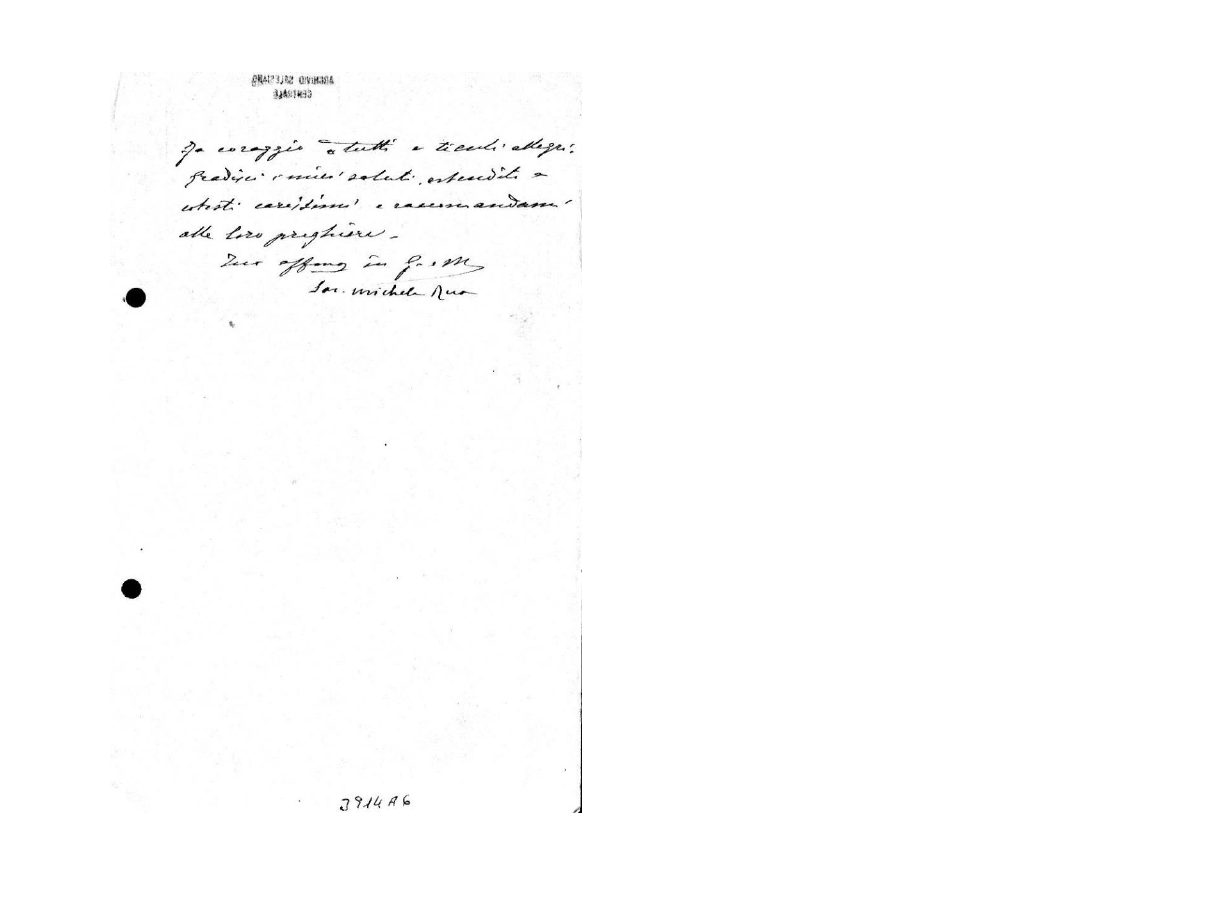 ARCHIVIO SALESIANO
CENTRALE
Fa coraggio a tutti e tienli allegri.
Gradisci i miei saluti, estendili a
cotesti carissimi e raccomandami
alle loro preghiere.
Tuo affmo in G. e M.
Sac. Michele Rua
3914 A 6